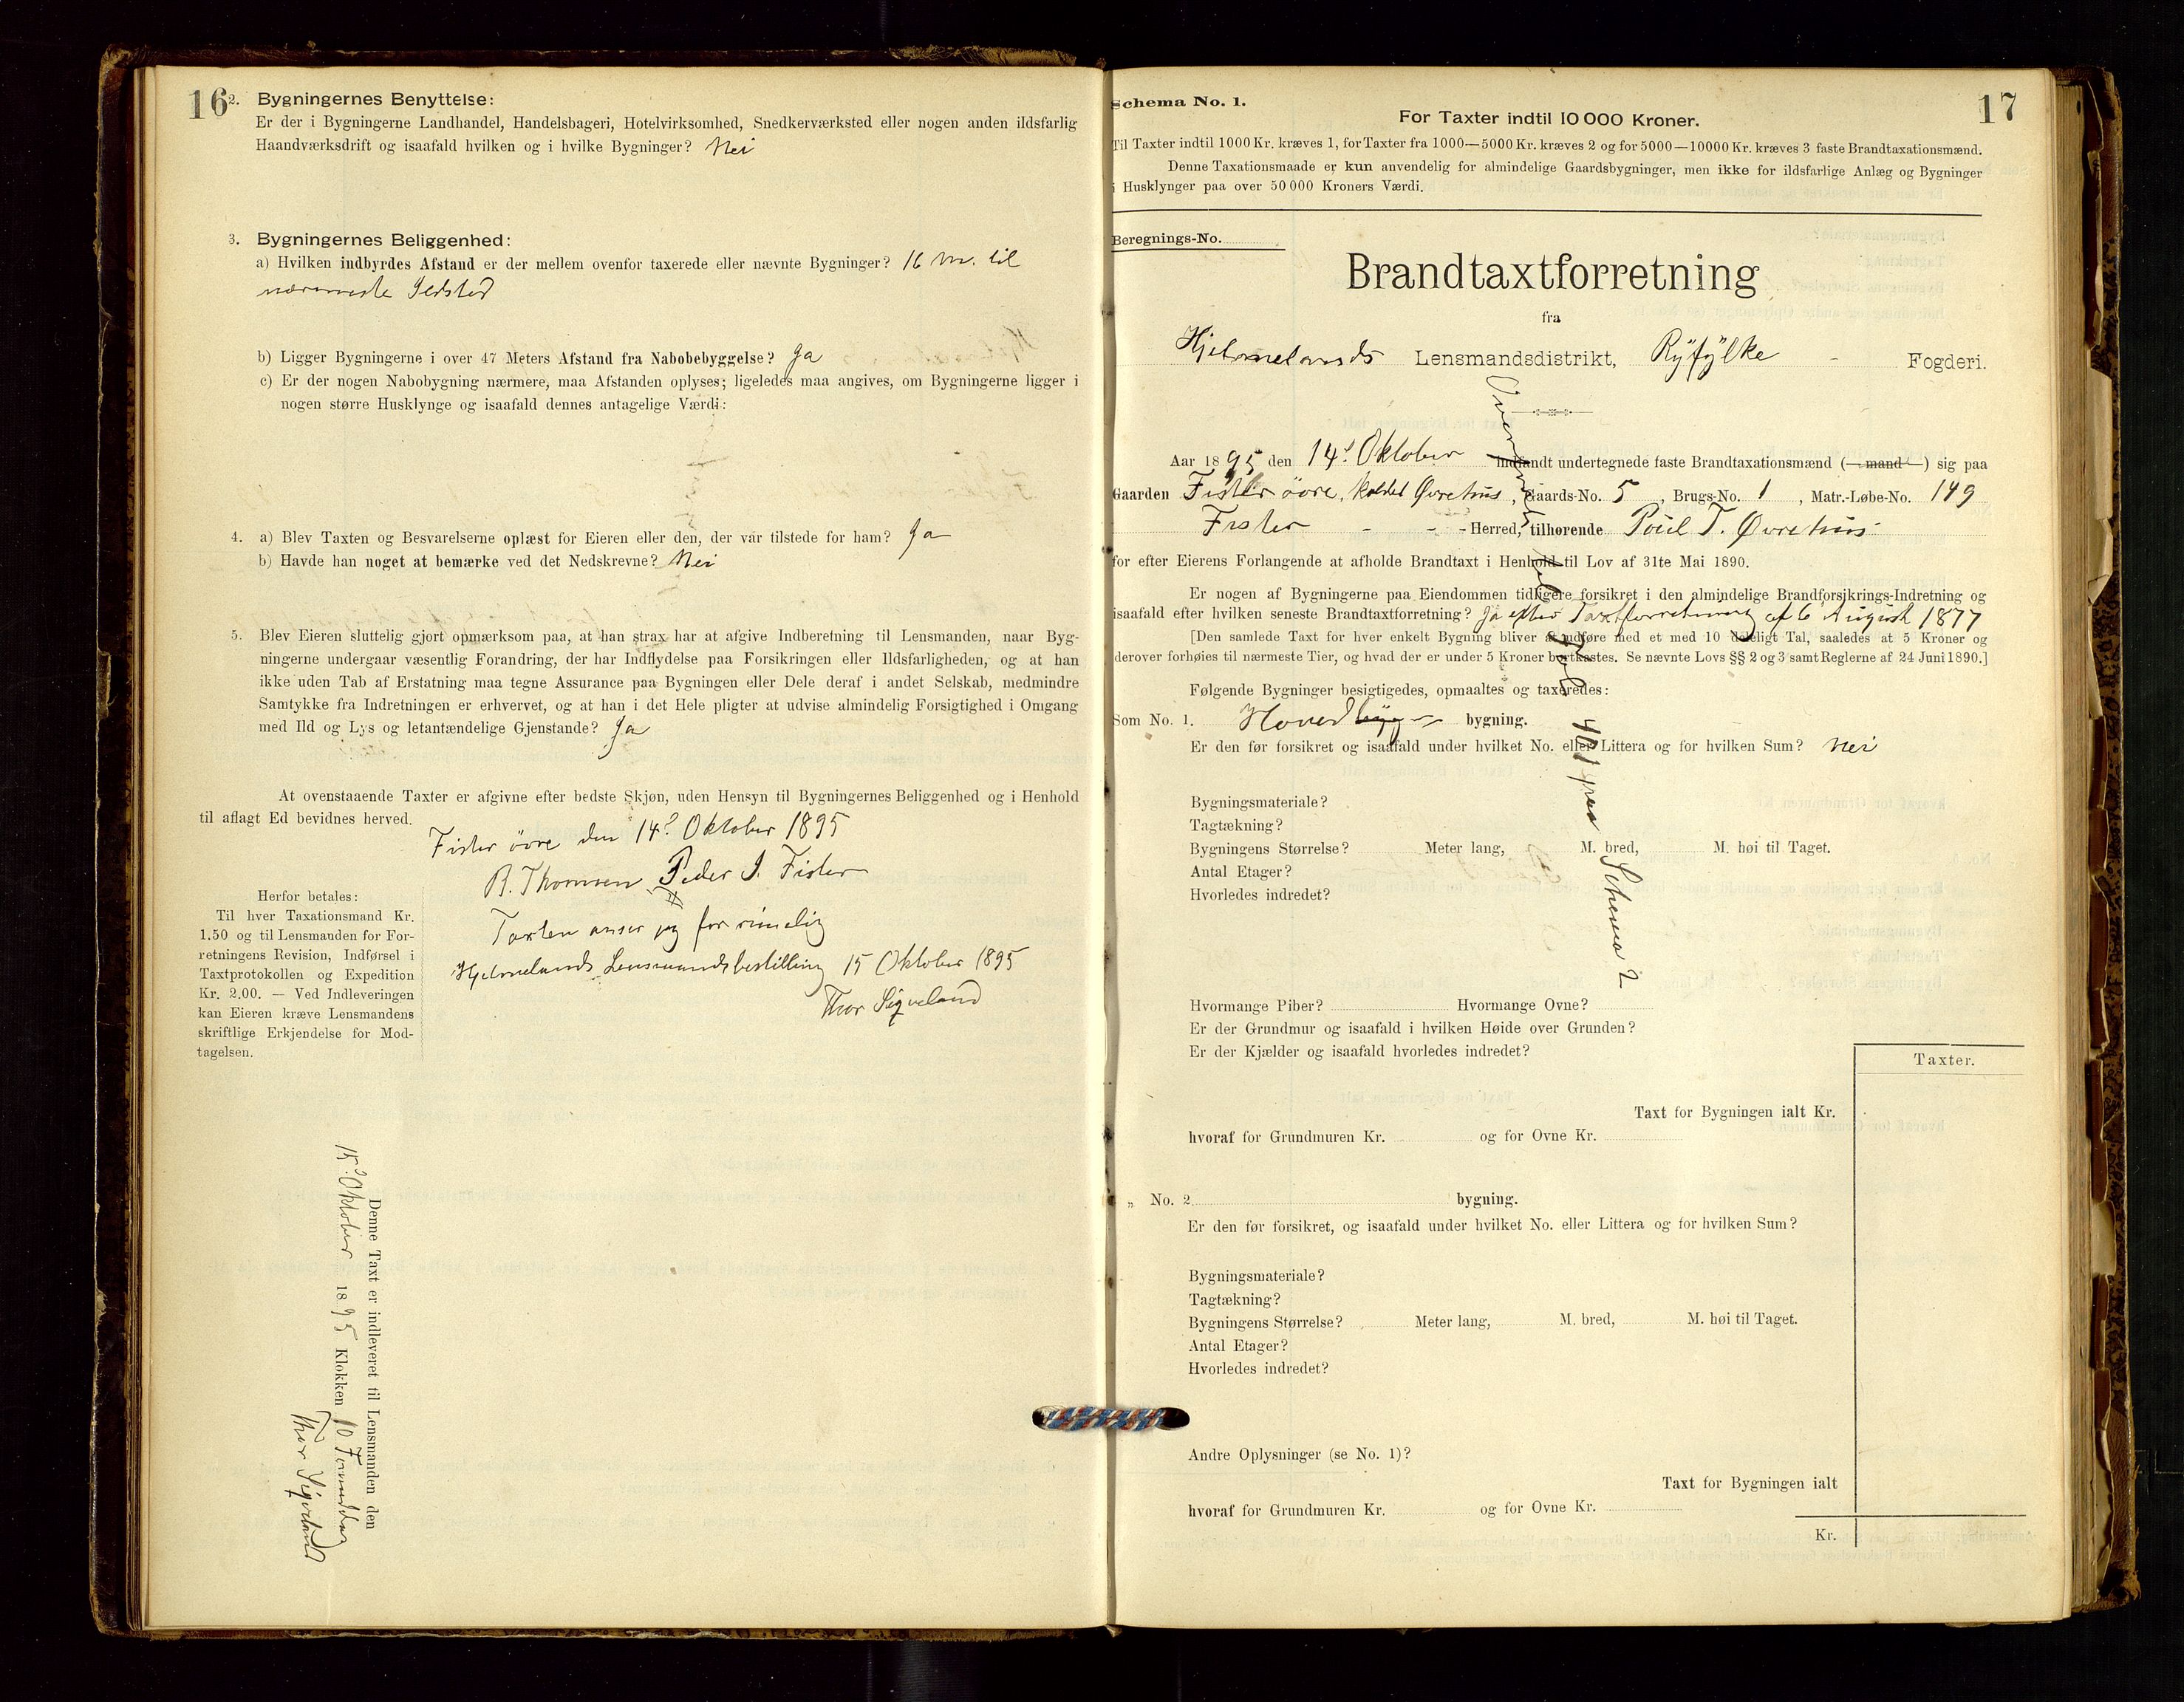 16
2. Bygningernes Benyttelse:
Er der i Bygningerne Landhandel, Handelsbageri, Hotelvirksomhed, Snedkerværksted eller nogen anden ildsfarlig
Haandværksdrift og isaafald hvilken og i hvilke Bygninger? Nei
3. Bygningernes Beliggenhed:
a) Hvilken indbyrdes Afstand er der mellem ovenfor taxerede eller nævnte Bygninger? 16 m. til
nærmeste Ildsted
b) Ligger Bygningerne i over 47 Meters Afstand fra Nabobebyggelse? Ja
c) Er der nogen Nabobygning nærmere, maa Afstanden oplyses; ligeledes maa angives, om Bygningerne ligger i
nogen større Husklynge og isaafald dennes antagelige Værdi:
4. a) Blev Taxten og Besvarelserne oplæst for Eieren eller den, der var tilstede for ham? Ja
b) Havde han noget at bemærke ved det Nedskrevne? Nei
5. Blev Eieren sluttelig gjort opmærksom paa, at han strax har at afgive Indberetning til Lensmanden, naar Byg-
ningerne undergaar væsentlig Forandring, der har Indflydelse paa Forsikringen eller Ildsfarligheden, og at han
ikke uden Tab af Erstatning maa tegne Assurance paa Bygningen eller Dele deraf i andet Selskab, medmindre
Samtykke fra Indretningen er erhvervet, og at han i det Hele pligter at udvise almindelig Forsigtighed i Omgang
med Ild og Lys og letantændelige Gjenstande? Ja
At ovenstaaende Taxter er afgivne efter bedste Skjøn, uden Hensyn til Bygningernes Beliggenhed og i Henhold
til aflagt Ed bevidnes herved.
Fister øvre den 14d Oktober 1895
R. Thomsen Peder J. Fister
Taxten anser jeg for rimelig
Hjelmelands Lensmandsbestilling 15 Oktober 1895
Thor Sigveland
Herfor betales:
Til hver Taxationsmand Kr.
1.50 og til Lensmanden for For-
retningens Revision, Indførsel i
Taxtprotokollen og Expedition
Kr. 2.00. — Ved Indleveringen
kan Eieren kræve Lensmandens
skriftlige Erkjendelse for Mod-
tagelsen.
Denne Taxt er indleveret til Lensmanden den
15d Oktober 1895 Klokken 10 Formiddag
Thor Sigveland
17
Schema No. 1.
For Taxter indtil 10 000 Kroner.
Til Taxter indtil 1000 Kr. kræves 1, for Taxter fra 1000—5000 Kr. kræves 2 og for 5000—10000 Kr. kræves 3 faste Brandtaxationsmænd.
Denne Taxationsmaade er kun anvendelig for almindelige Gaardsbygninger, men ikke for ildsfarlige Anlæg og Bygninger
i Husklynger paa over 50 000 Kroners Værdi.
Beregnings-No.
Brandtaxtforretning
fra
Hjelmelands Lensmandsdistrikt, Ryfylke Fogderi.
Aar 1895 den 14d Oktober indfandt undertegnede faste Brandtaxationsmænd (—mand—) sig paa
Gaarden Fister øvre, kaldet Øvrehus, Gaards-No. 5, Brugs-No. 1, Matr.-Løbe-No. 149
Fister Herred, tilhørende Poul T. Øvrehus
for efter Eierens Forlangende at afholde Brandtaxt i Henhold til Lov af 31te Mai 1890.
Er nogen af Bygningerne paa Eiendommen tidligere forsikret i den almindelige Brandforsikrings-Indretning og
isaafald efter hvilken seneste Brandtaxtforretning? Ja efter Taxtforretning af 6 August 1877
[Den samlede Taxt for hver enkelt Bygning bliver at udføre med et med 10 deleligt Tal, saaledes at 5 Kroner og
derover forhøies til nærmeste Tier, og hvad der er under 5 Kroner bortkastes. Se nævnte Lovs §§ 2 og 3 samt Reglerne af 24 Juni 1890.]
Følgende Bygninger besigtigedes, opmaaltes og taxeredes:
Som No. 1. Hovedbyg bygning.
Er den før forsikret og isaafald under hvilket No. eller Littera og for hvilken Sum? Nei
Bygningsmateriale?
Tagtækning?
Bygningens Størrelse? Meter lang, M. bred, M. høi til Taget.
Antal Etager?
Hvorledes indredet?
401 paa Schema 2
Hvormange Piber? Hvormange Ovne?
Er der Grundmur og isaafald i hvilken Høide over Grunden?
Er der Kjælder og isaafald hvorledes indredet?
Taxter.
Taxt for Bygningen ialt Kr.
hvoraf for Grundmuren Kr. og for Ovne Kr.
„ No. 2 bygning.
Er den før forsikret, og isaafald under hvilket No. eller Littera og for hvilken Sum?
Bygningsmateriale?
Tagtækning?
Bygningens Størrelse? Meter lang, M. bred, M. høi til Taget.
Antal Etager?
Hvorledes indredet?
Andre Oplysninger (se No. 1)?
Taxt for Bygningen ialt
hvoraf for Grundmuren Kr. og for Ovne Kr.
Kr.